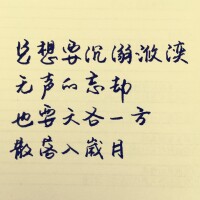 只想要沉溺微澜
无声的忘却
也要天各一方
散落入岁月